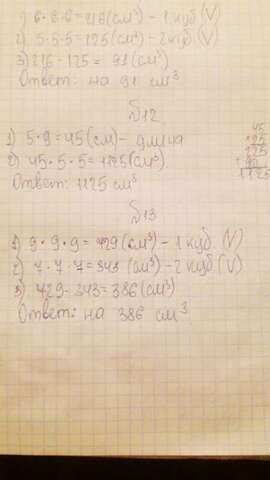 1) 6·6·6=216(см³) - 1 куб (V)
2) 5·5·5=125(см³) - 2 куб. (V)
3) 216-125 = 91(см³)
Ответ: на 91 см³
№12
1) 5·9=45(см)- длина
2) 45·5·5=1125(см³)
Ответ: 1125 см³
45
125
1125
№13
1) 9·9·9=729(см³) - 1 куб. (V)
2) 7·7·7=343 (см³) - 2 куб (V)
3) 729-343=386(см³)
Ответ: на 386 см³